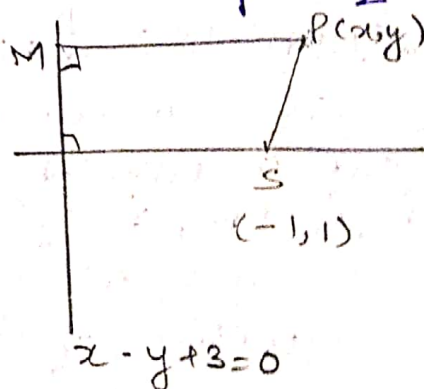 M
P(x,y)
S
(-1, 1)
x - y + 3 = 0